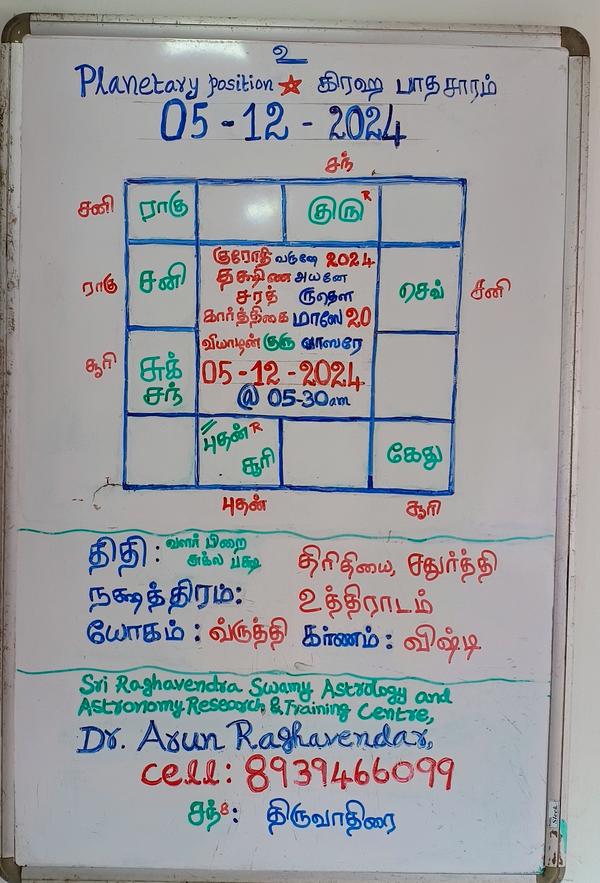 உ
Planetary position ★ கிரஹ பாதசாரம்
05-12-2024
சந்
சனி ராகு குரு R
ராகு சனி செவ் சனி
குரோதி வருஷே 2024
தக்ஷிண அயனே
சரத் ருதௌ
கார்த்திகை மாஸே 20
வியாழன் குரு வாஸரே
05-12-2024
@ 05-30am
சூரி சுக்
சந்
புதன் R
சூரி கேது
புதன் சூரி
திதி: வளர் பிறை திரிதியை, சதுர்த்தி
சுக்ல பக்ஷ
நக்ஷத்திரம்: உத்திராடம்
யோகம்: வ்ருத்தி கர்ணம்: விஷ்டி
Sri Raghavendra Swamy Astrology and
Astronomy Research & Training Centre,
Dr. Arun Raghavendar,
cell: 8939466099
சந் 8: திருவாதிரை